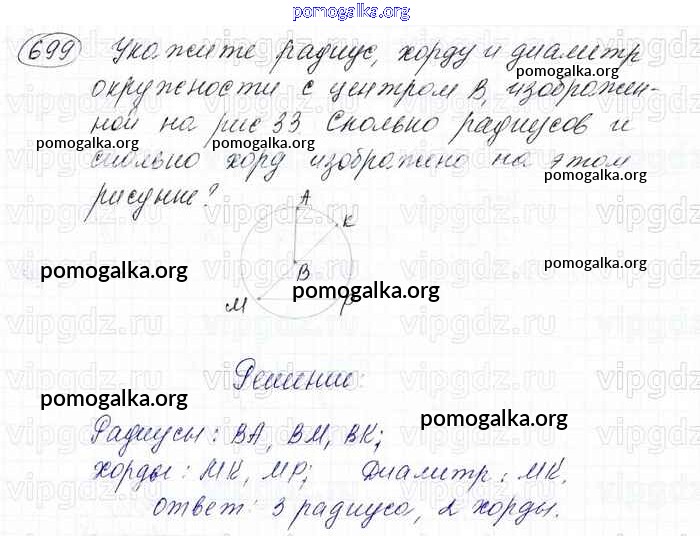 pomogalka.org
699 Укажите радиус, хорду и диаметр
окружности с центром В, изображен-
ной на рис 33. Сколько радиусов и
сколько хорд изображено на этом
рисунке?
A
K
B
M
P
Решение:
Радиусы: ВА, ВМ, ВК;
Хорды: МК, МР; Диаметр: МК.
Ответ: 3 радиуса, 2 хорды.
pomogalka.org
pomogalka.org
pomogalka.org
pomogalka.org
pomogalka.org
pomogalka.org
pomogalka.org
pomogalka.org
pomogalka.org
vipgdz.ru